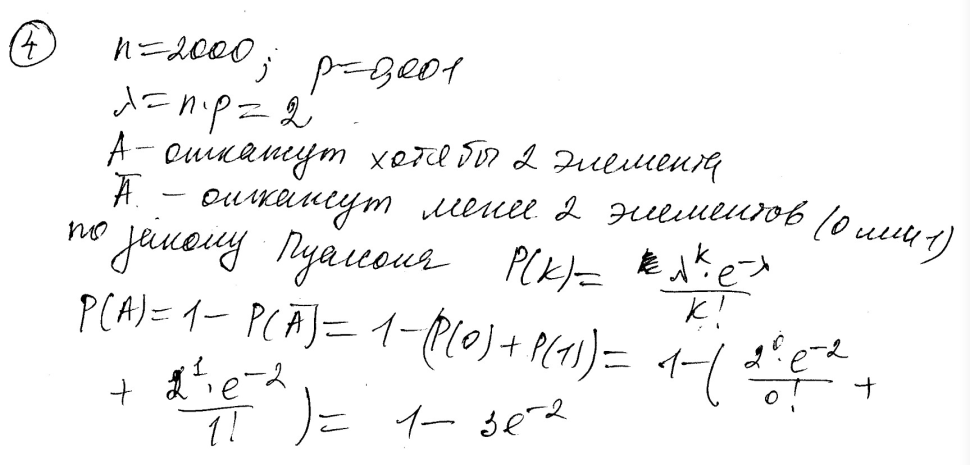 ④ n=2000; p=0,001
λ=n·p=2
A – откажут хотя бы 2 элемента
Ā – откажут менее 2 элементов (0 или 1)
по закону Пуассона P(k)= λ^k·e^-λ / k!
P(A)=1-P(Ā)=1-(P(0)+P(1))=1-( 2^0·e^-2 / 0! +
+ 2^1·e^-2 / 1! )= 1-3e^-2